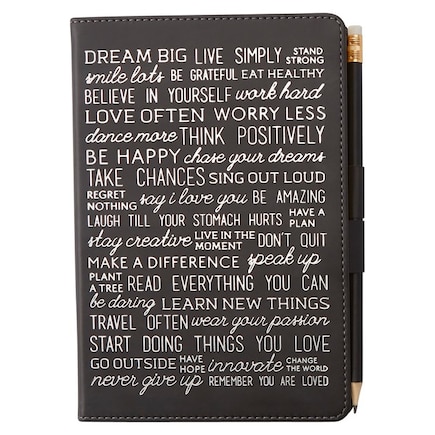 DREAM BIG LIVE SIMPLY STAND STRONG
smile lots BE GRATEFUL EAT HEALTHY
BELIEVE IN YOURSELF work hard
LOVE OFTEN WORRY LESS
dance more THINK POSITIVELY
BE HAPPY chase your dreams
TAKE CHANCES SING OUT LOUD
REGRET NOTHING say i love you BE AMAZING
LAUGH TILL YOUR STOMACH HURTS HAVE A PLAN
stay creative LIVE IN THE MOMENT DON'T QUIT
MAKE A DIFFERENCE speak up
PLANT A TREE READ EVERYTHING YOU CAN
be daring LEARN NEW THINGS
TRAVEL OFTEN wear your passion
START DOING THINGS YOU LOVE
GO OUTSIDE HAVE HOPE innovate CHANGE THE WORLD
never give up REMEMBER YOU ARE LOVED